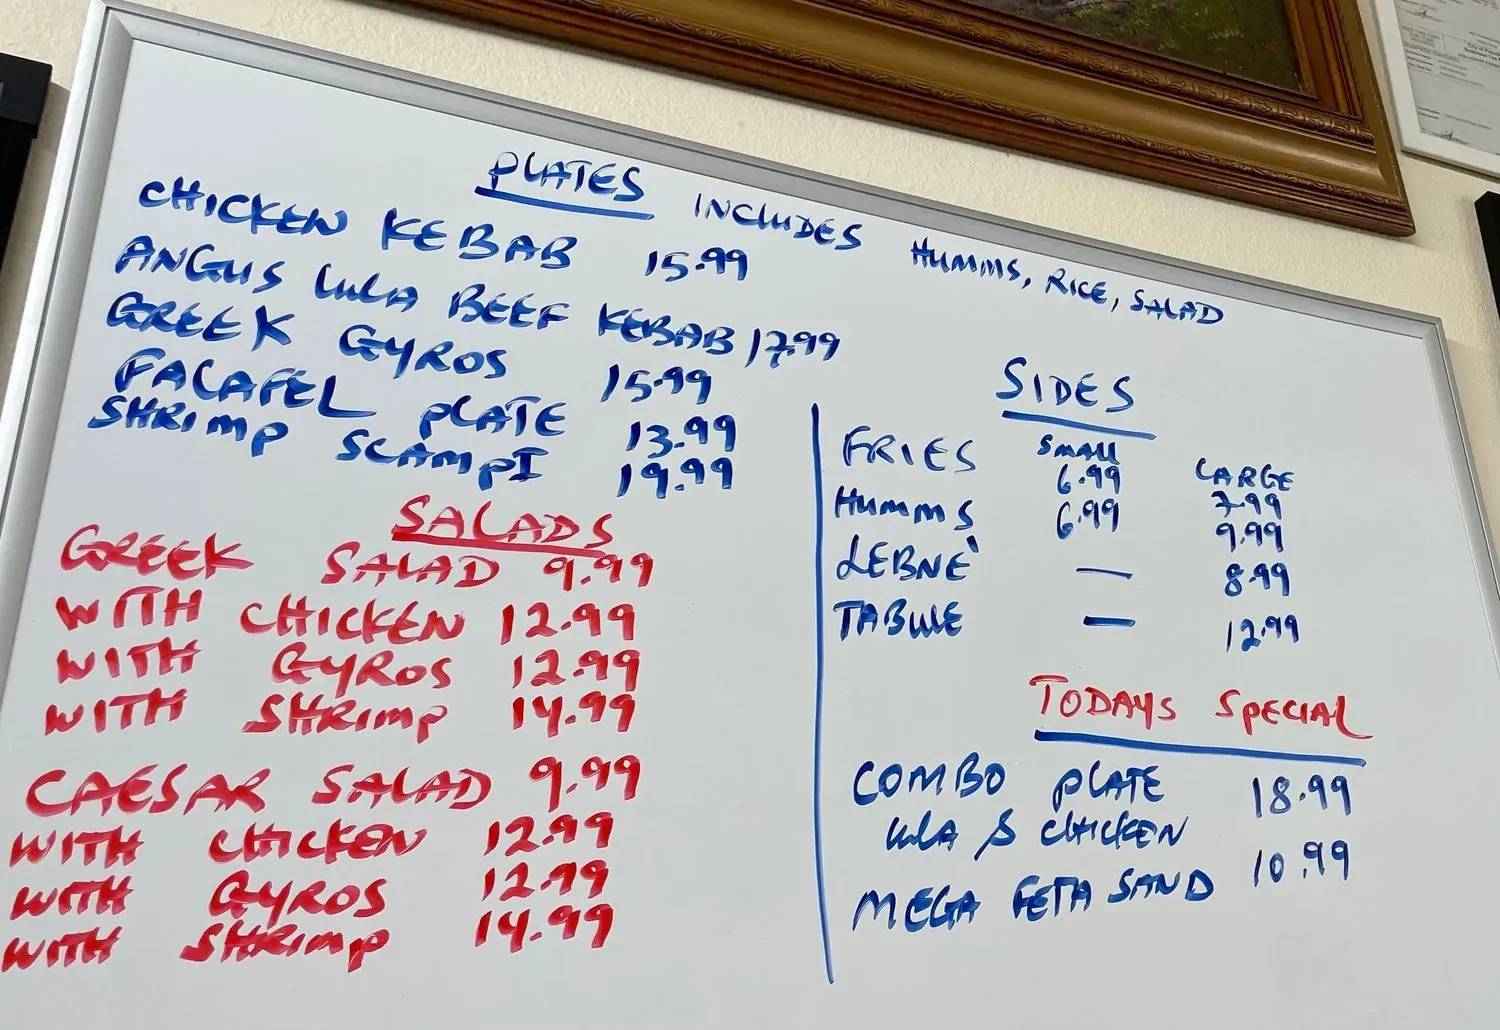 PLATES INCLUDES HUMMS, RICE, SALAD
CHICKEN KEBAB 15.99
ANGUS LULA BEEF KEBAB 17.99
GREEK GYROS 15.99
FALAFEL PLATE 13.99
SHRIMP SCAMPI 19.99
SALADS
GREEK SALAD 9.99
WITH CHICKEN 12.99
WITH GYROS 12.99
WITH SHRIMP 14.99
CAESAR SALAD 9.99
WITH CHICKEN 12.99
WITH GYROS 12.99
WITH SHRIMP 14.99
SIDES
SMALL LARGE
FRIES 6.99 7.99
HUMMS 6.99 9.99
LEBNE` — 8.99
TABULE — 12.99
TODAYS SPECIAL
COMBO PLATE 18.99
LULA & CHICKEN
MEGA FETA SAND 10.99